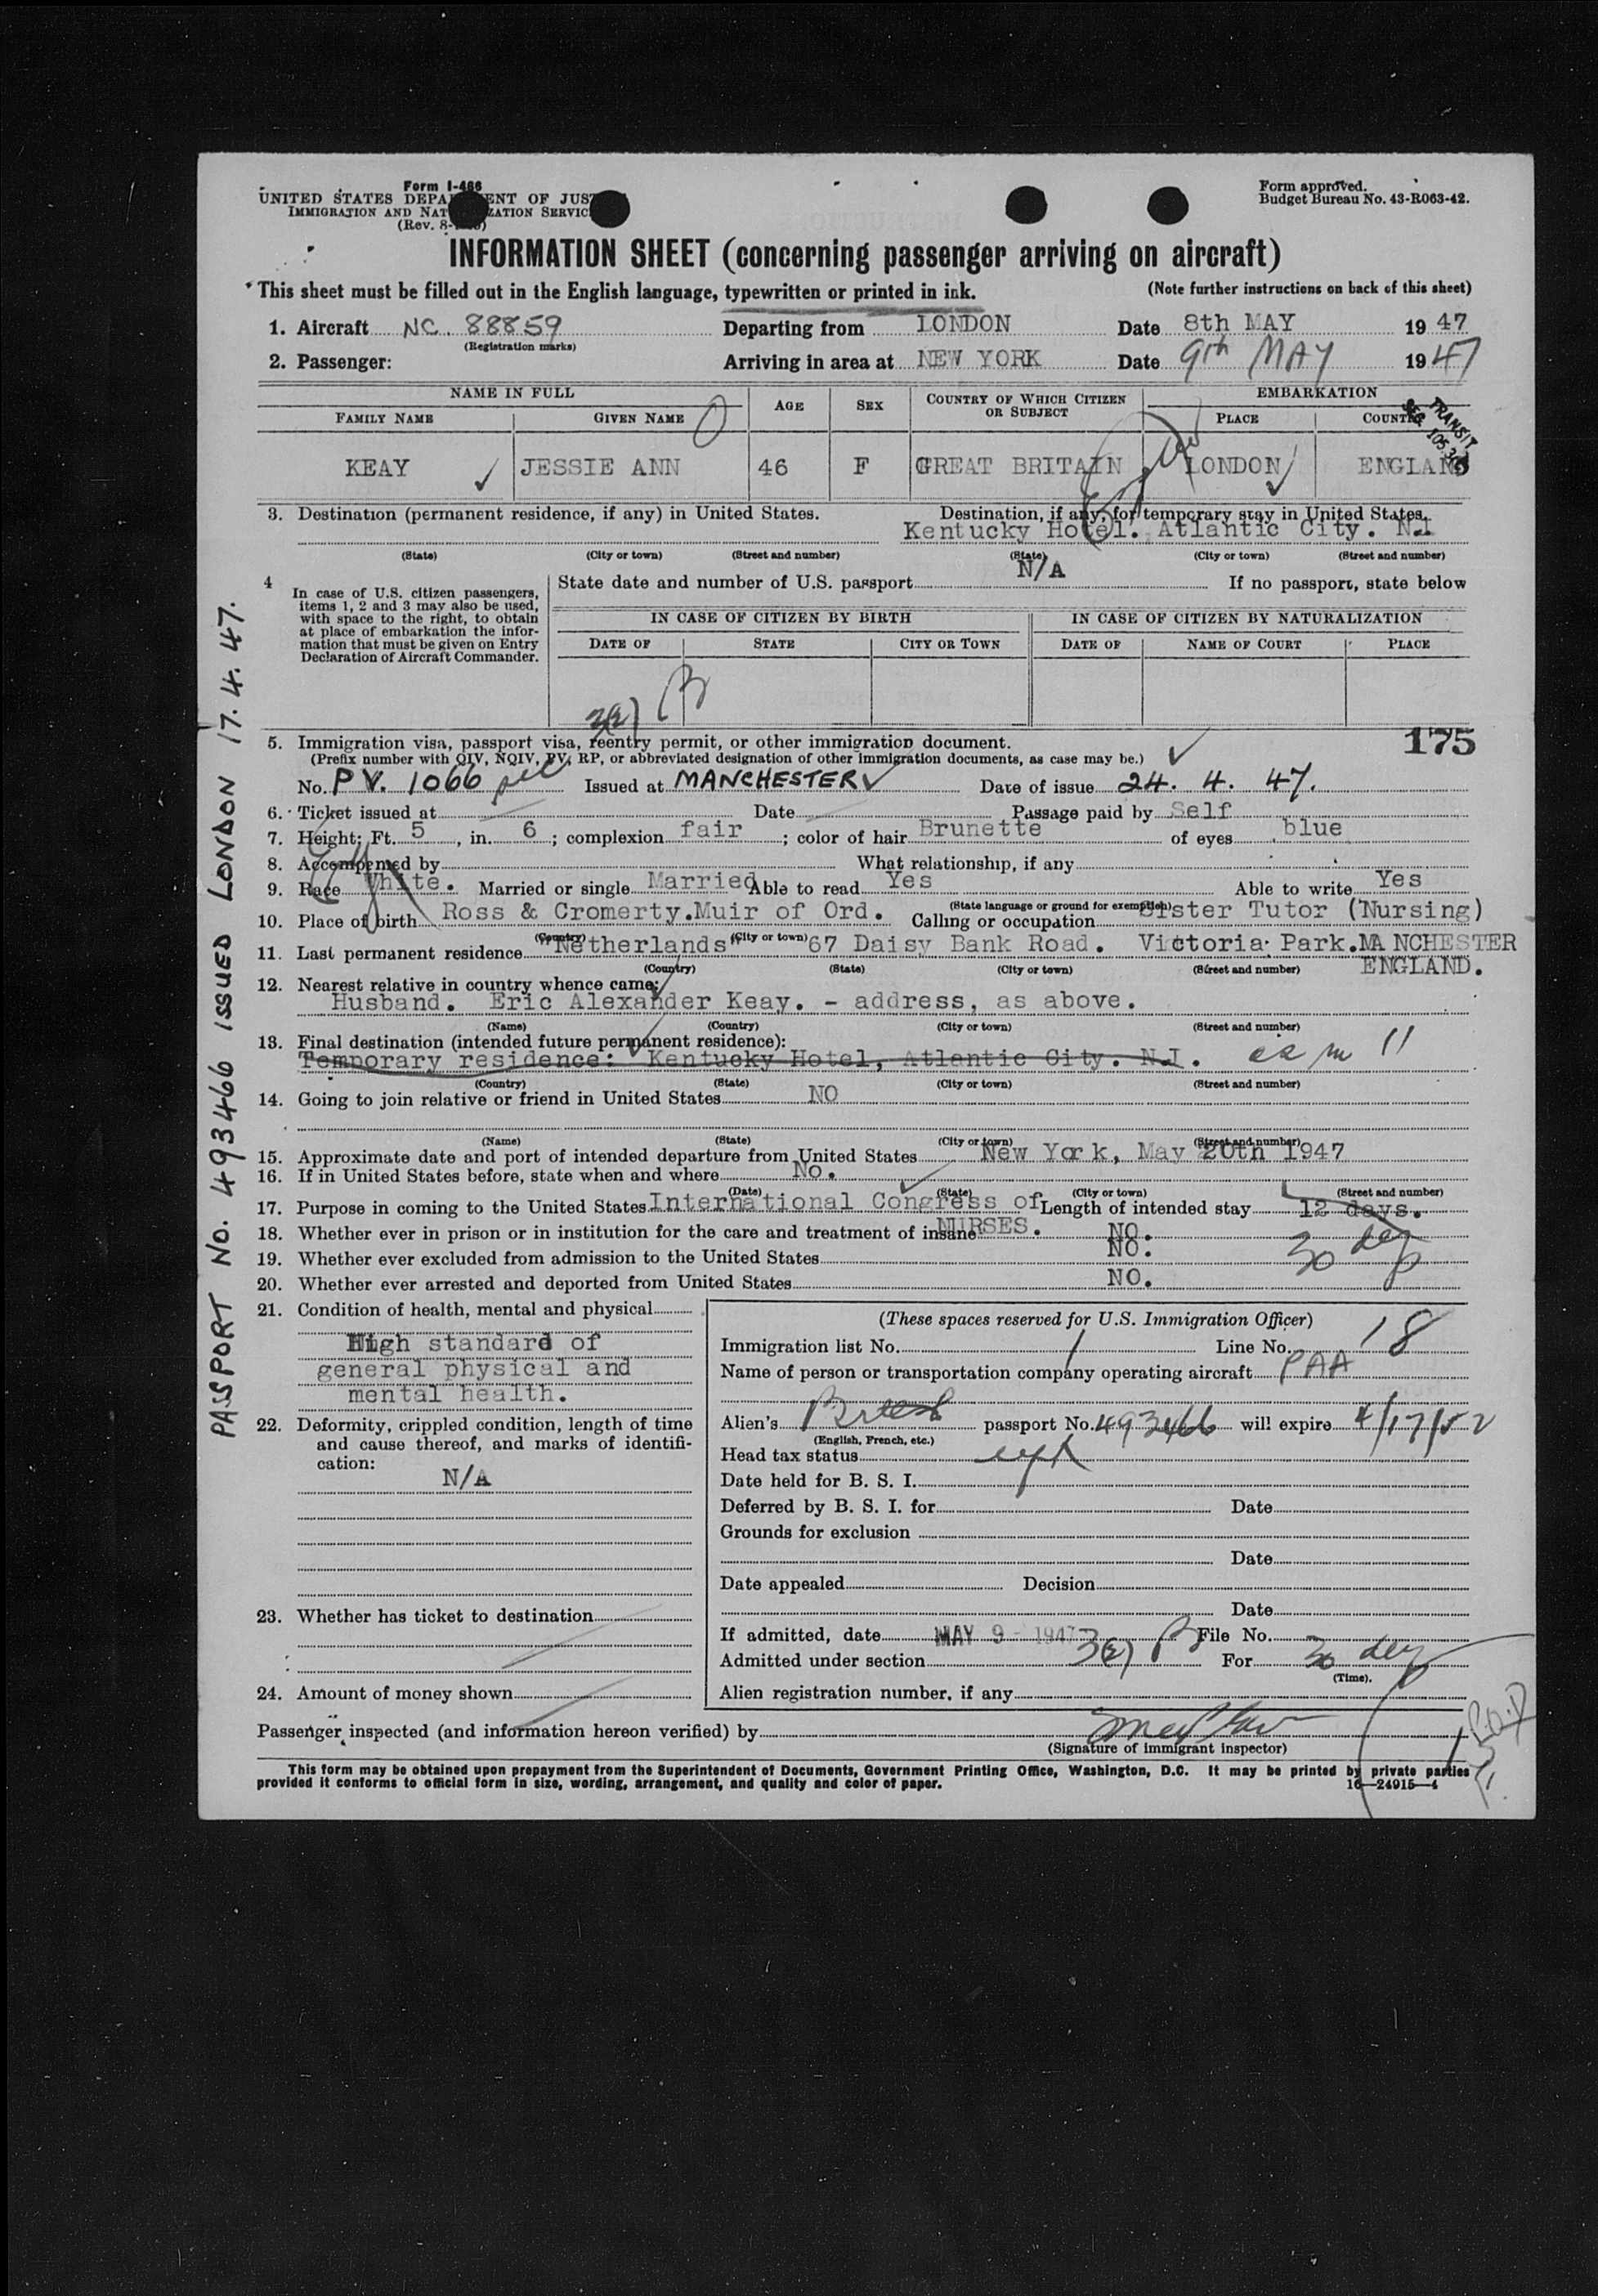 Form I-466
UNITED STATES DEPARTMENT OF JUSTICE
IMMIGRATION AND NATURALIZATION SERVICE
(Rev. 8-
Form approved.
Budget Bureau No. 43-R063-42.
INFORMATION SHEET (concerning passenger arriving on aircraft)
This sheet must be filled out in the English language, typewritten or printed in ink. (Note further instructions on back of this sheet)
1. Aircraft NC. 88859 Departing from LONDON Date 8th MAY 19 47
(Registration marks)
2. Passenger: Arriving in area at NEW YORK Date 9th MAY 19 47
NAME IN FULL AGE SEX COUNTRY OF WHICH CITIZEN OR SUBJECT EMBARKATION
FAMILY NAME GIVEN NAME PLACE COUNTRY
TRANSIT
KEAY JESSIE ANN 46 F GREAT BRITAIN LONDON ENGLAND
3. Destination (permanent residence, if any) in United States. Destination, if any, for temporary stay in United States.
Kentucky Hotel. Atlantic City. N.J
(State) (City or town) (Street and number) (State) (City or town) (Street and number)
4 In case of U.S. citizen passengers, items 1, 2 and 3 may also be used, with space to the right, to obtain at place of embarkation the information that must be given on Entry Declaration of Aircraft Commander.
State date and number of U.S. passport N/A If no passport, state below
IN CASE OF CITIZEN BY BIRTH IN CASE OF CITIZEN BY NATURALIZATION
DATE OF STATE CITY OR TOWN DATE OF NAME OF COURT PLACE
3(2) B
175
5. Immigration visa, passport visa, reentry permit, or other immigration document.
(Prefix number with QIV, NQIV, PV, RP, or abbreviated designation of other immigration documents, as case may be.)
No. P V. 1066 Issued at MANCHESTER Date of issue 24. 4. 47.
6. Ticket issued at Date Passage paid by Self
7. Height: Ft. 5, in. 6; complexion fair; color of hair Brunette of eyes blue
8. Accompanied by What relationship, if any
9. Race White. Married or single Married Able to read Yes Able to write Yes
(State language or ground for exemption)
10. Place of birth Ross & Cromerty.Muir of Ord. Calling or occupation Sister Tutor (Nursing)
(Country) (City or town)
11. Last permanent residence "Netherlands" 67 Daisy Bank Road. Victoria Park.MANCHESTER
ENGLAND.
(Country) (State) (City or town) (Street and number)
12. Nearest relative in country whence came:
Husband. Eric Alexander Keay. - address, as above.
(Name) (Country) (City or town) (Street and number)
13. Final destination (intended future permanent residence):
Temporary residence: Kentucky Hotel, Atlantic City. N.J. 11
(Country) (State) (City or town) (Street and number)
14. Going to join relative or friend in United States NO
(Name) (State) (City or town) (Street and number)
15. Approximate date and port of intended departure from United States New York, May 20th 1947
16. If in United States before, state when and where No.
(Date) (State) (City or town) (Street and number)
17. Purpose in coming to the United States International Congress of Length of intended stay 12 days.
NURSES.
18. Whether ever in prison or in institution for the care and treatment of insane NO.
19. Whether ever excluded from admission to the United States NO. 30 dey
20. Whether ever arrested and deported from United States NO.
21. Condition of health, mental and physical
High standard of
general physical and
mental health.
22. Deformity, crippled condition, length of time and cause thereof, and marks of identification:
N/A
23. Whether has ticket to destination
24. Amount of money shown
(These spaces reserved for U.S. Immigration Officer)
Immigration list No. 1 Line No. 18
Name of person or transportation company operating aircraft PAA
Alien's British passport No. 493466 will expire 4/17/52
(English, French, etc.)
Head tax status
Date held for B. S. I.
Deferred by B. S. I. for Date
Grounds for exclusion
Date
Date appealed Decision
Date
If admitted, date MAY 9 - 1947 File No.
Admitted under section 3(2) B For 30 dey
(Time).
Alien registration number, if any
Passenger inspected (and information hereon verified) by
(Signature of immigrant inspector)
This form may be obtained upon prepayment from the Superintendent of Documents, Government Printing Office, Washington, D.C. It may be printed by private parties
provided it conforms to official form in size, wording, arrangement, and quality and color of paper. 16—24915—4
PASSPORT NO. 493466 ISSUED LONDON 17. 4. 47.